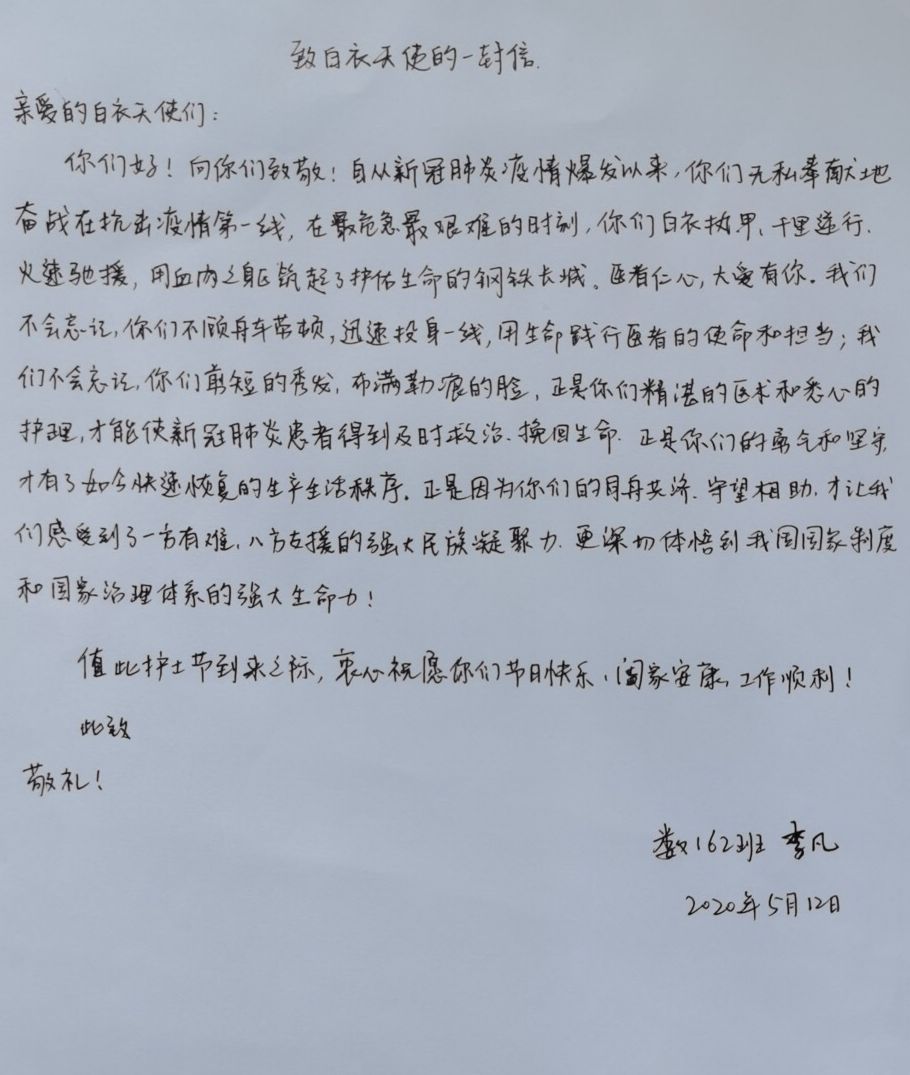 致白衣天使的一封信.
亲爱的白衣天使们：
你们好！向你们致敬！自从新冠肺炎疫情爆发以来，你们无私奉献地
奋战在抗击疫情第一线，在最危急最艰难的时刻，你们白衣执甲、千里逆行、
火速驰援，用血肉之躯筑起了护佑生命的钢铁长城。医者仁心，大爱有你。我们
不会忘记，你们不顾舟车劳顿，迅速投身一线，用生命践行医者的使命和担当；我
们不会忘记，你们剪短的秀发，布满勒痕的脸，正是你们精湛的医术和悉心的
护理，才能使新冠肺炎患者得到及时救治、挽回生命.正是你们的勇气和坚守，
才有了如今快速恢复的生产生活秩序。正是因为你们的同舟共济、守望相助，才让我
们感受到了一方有难，八方支援的强大民族凝聚力.更深切体悟到我国国家制度
和国家治理体系的强大生命力！
值此护士节到来之际，衷心祝愿你们节日快乐，阖家安康，工作顺利！
此致
敬礼！
数162班 李凡
2020年5月12日